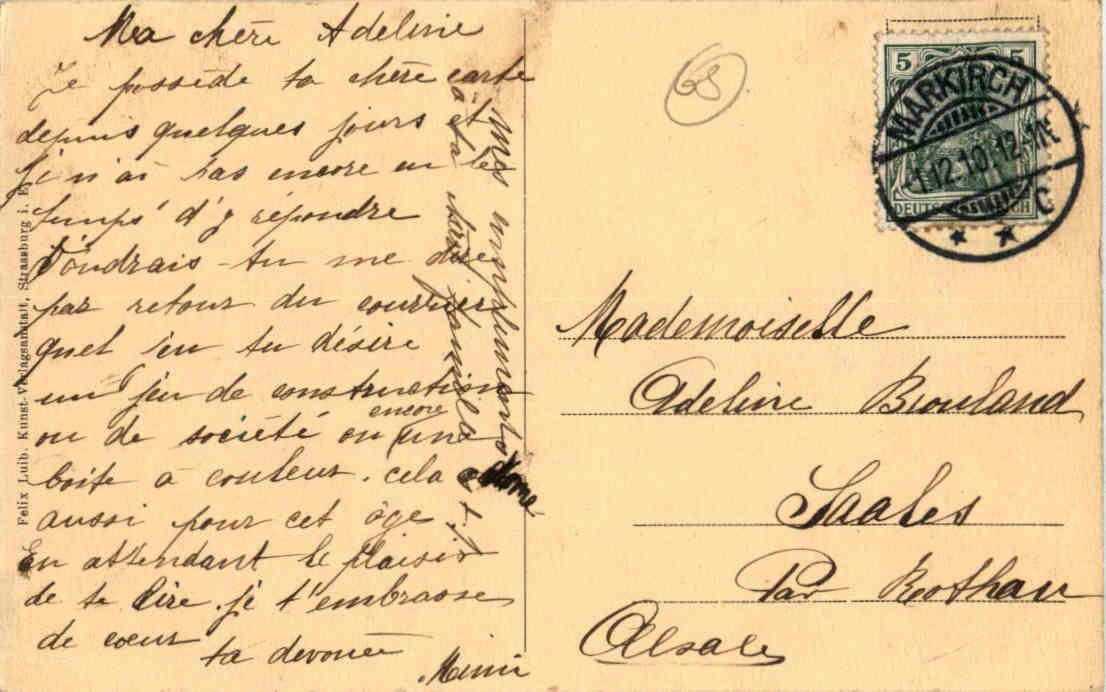 Ma chère Adeline
Je possède ta chère carte
depuis quelques jours et
je n'ai pas encore eu le
temps d'y répondre
Voudrais-tu me dire
par retour du courrier
quel jeu tu désire
un jeu de construction
ou de société ou encore une
boite a couleur. cela
aussi pour cet âge.
En attendant le plaisir
de te lire. je t'embrasse
de cœur
ta dévouée
Mimi
Mes compliments
à ta chère famille
Mademoiselle
Adeline Brouland
Saales
Par Rothau
Alsace
68
5 5
DEUTSCHES REICH
MARKIRCH
1.12.10.12-1N
* * C
Felix Luib, Kunst-Verlagsanstalt, Strassburg i. E.